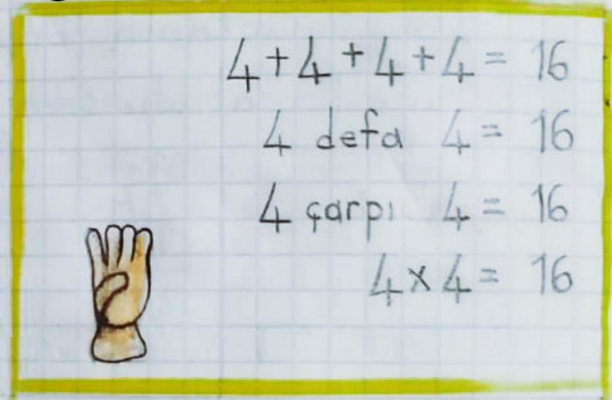 4+4+4+4= 16
4 defa 4= 16
4 çarpı 4= 16
4x4= 16